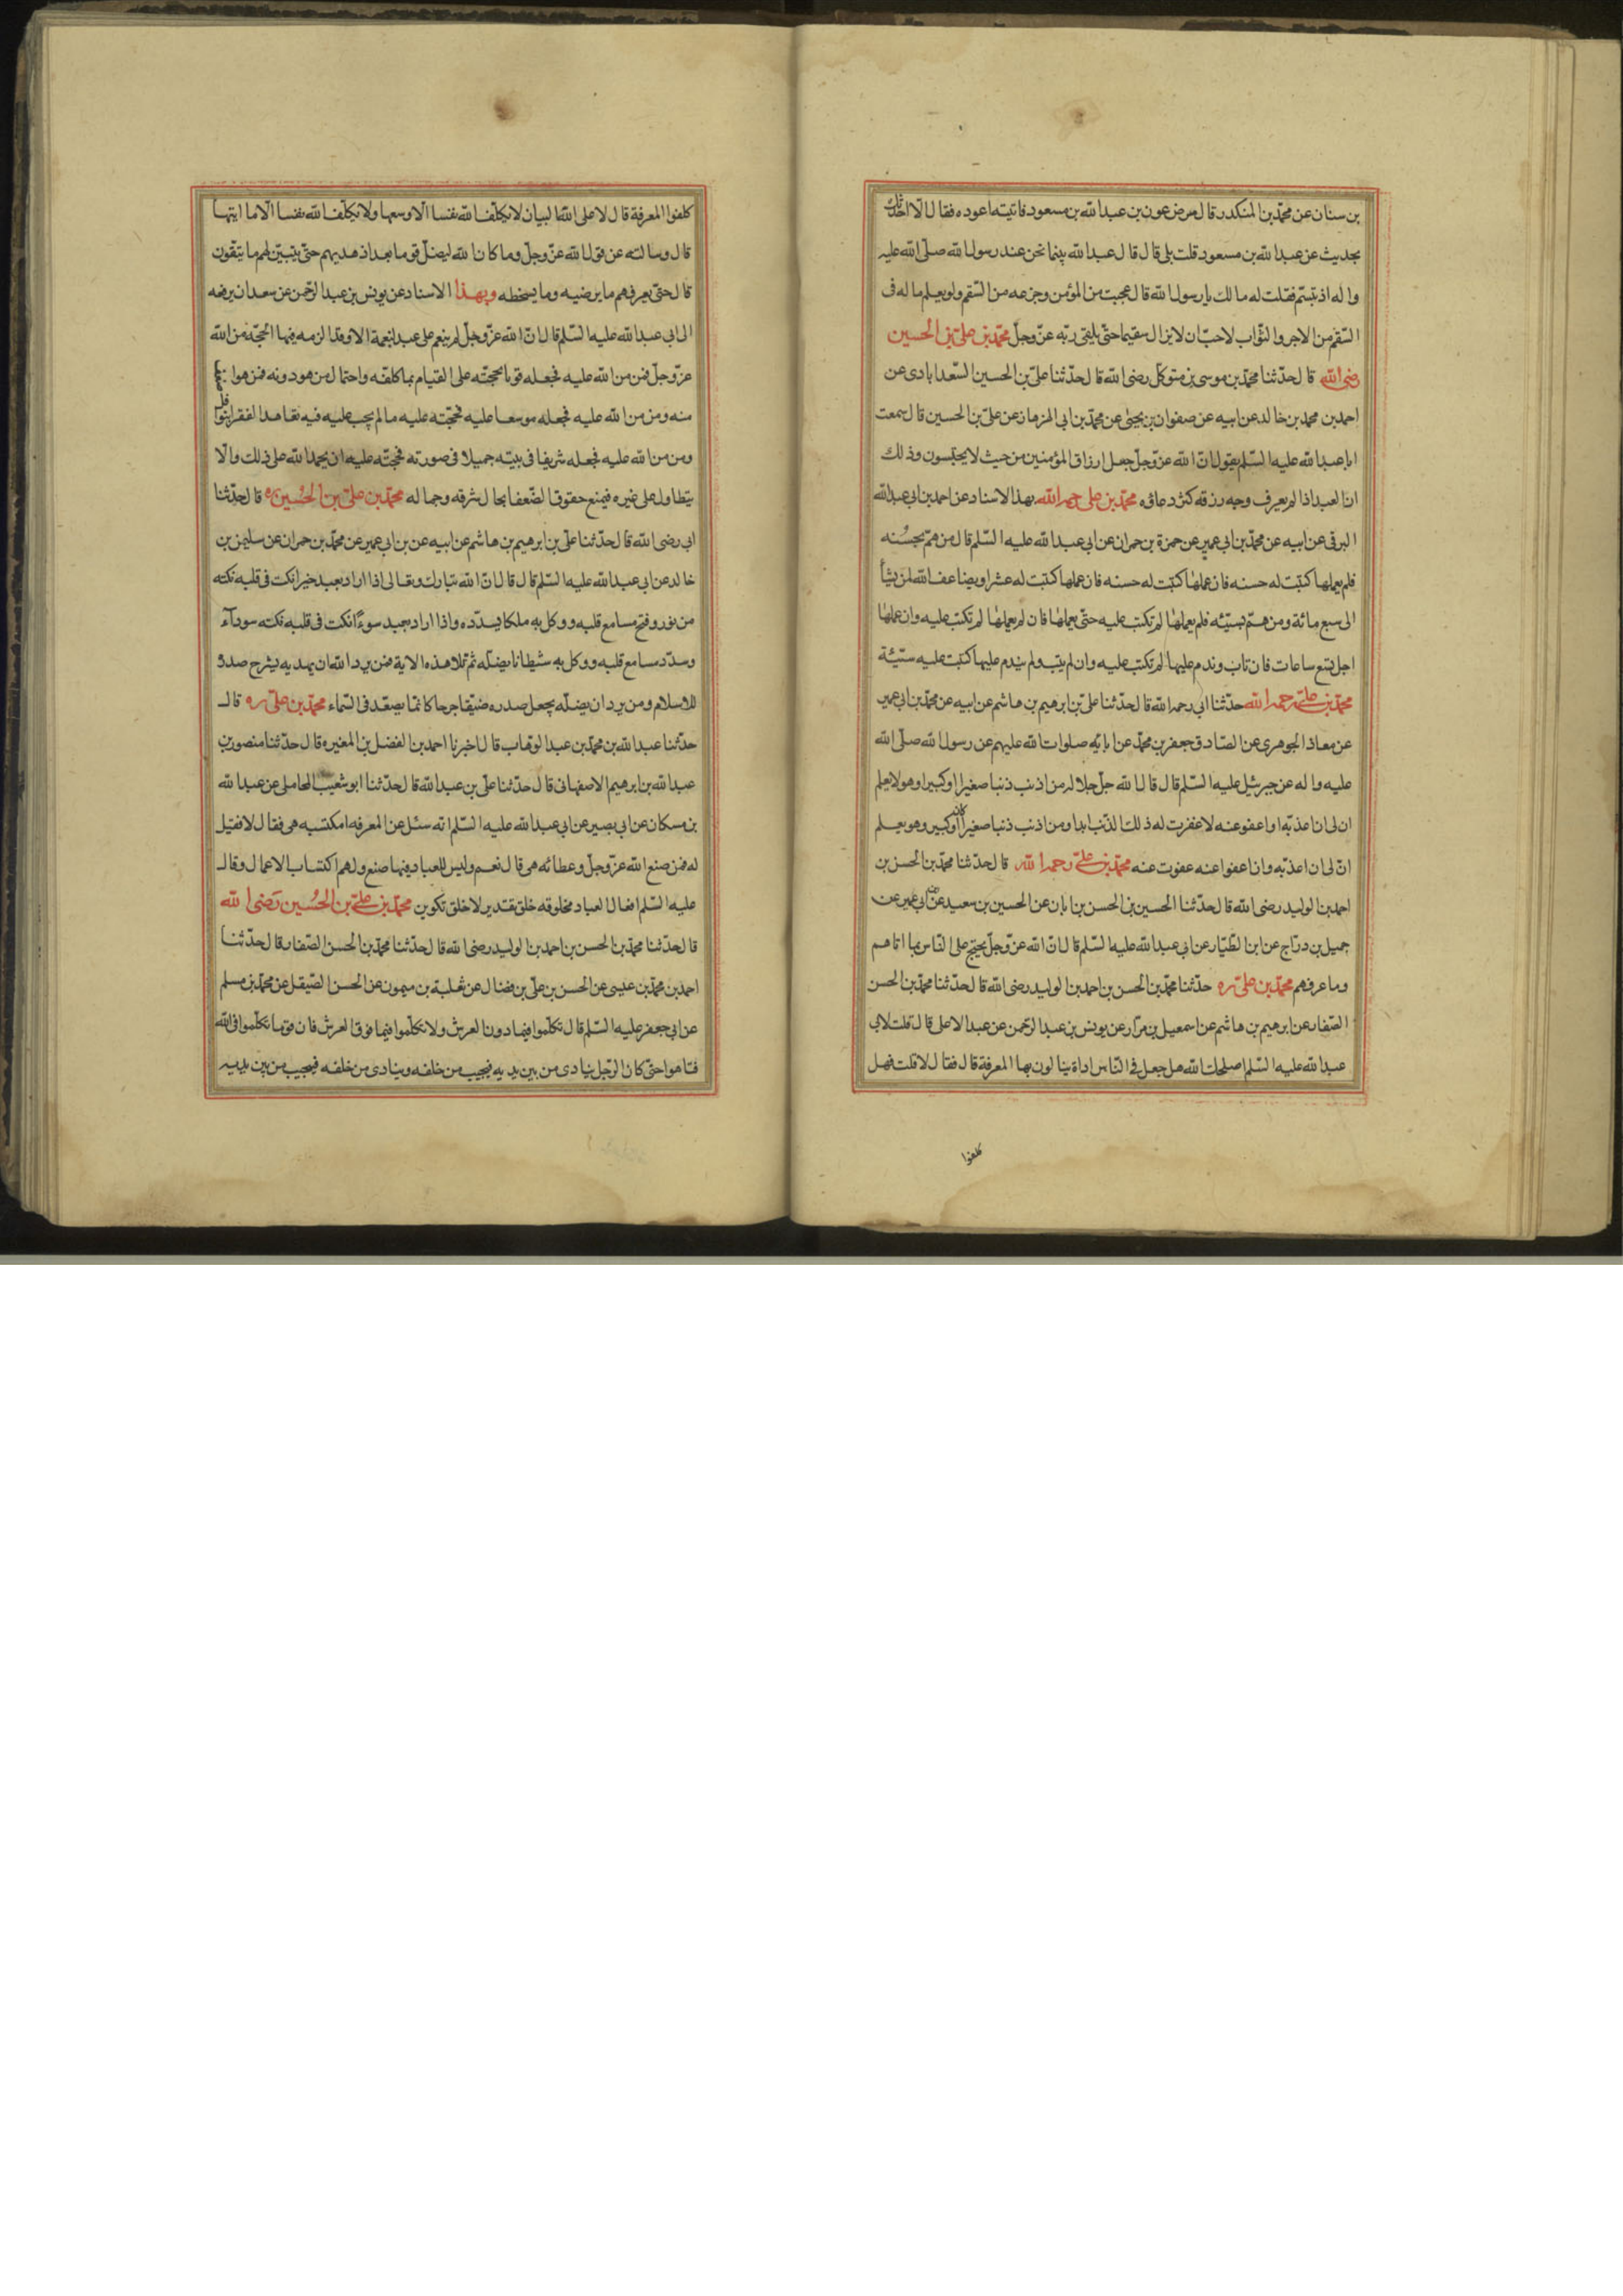 بن سنان عن محمّد بن المنكدر قال مرض عون بن عبد الله بن مسعود فاتيته اعوده فقال الّا احدّثك
بحديث عن عبد الله بن مسعود قلت بلى قال قال عبد الله بينما نحن عند رسول الله صلّى الله عليه
واله اذ تبسّم فقلت له مالك يا رسول الله قال عجبت من المؤمن وجزعه من السّقم ولو يعلم ما له فى
السّقم من الاجر والثّواب لاحبّ ان لا يزال سقيما حتّى يلقى ربّه عزّ وجلّ محمّد بن علىّ بن الحسين
رضى الله قال حدّثنا محمّد بن موسى بن متوكّل رضى الله قال حدّثنا علىّ بن الحسين السّعدابادى عن
احمد بن محمد بن خالد عن ابيه عن صفوان بن يحيى عن محمّد بن ابى الهزهاز عن علىّ بن الحسين قال سمعت
ابا عبد الله عليه السّلم يقول انّ الله عزّ وجلّ جعل ارزاق المؤمنين من حيث لا يحتسبون وذلك
ان العبد اذا لم يعرف وجه رزقه كثر دعاؤه محمّد بن على رحمه الله بهذا الاسناد عن احمد بن ابى عبد الله
البرقى عن ابيه عن محمّد بن ابى عمير عن حمزة بن حمران عن ابى عبد الله عليه السّلم قال من همّ بحسنه
فلم يعملها كتبت له حسنه فان عملها كتبت له عشرا ويضاعف الله لمن يشأ
الى سبع مائة ومن همّ بسيّئه فلم يعملها لم تكتب عليه حتّى يعملها فان لم يعملها لم تكتب عليه وان عملها
اجل تسع ساعات فان تاب وندم عليها لم تكتب عليه وان لم يتب ولم يندم عليها كتبت عليه سيّئة
محمّد بن علىّ رحمه الله حدّثنا ابى رحمه الله قال حدّثنا علىّ بن ابرهيم بن هاشم عن ابيه عن محمّد بن ابى عمير
عن معاذ الجوهرى عن الصّادق جعفر بن محمّد عن ابائه صلوات الله عليهم عن رسول الله صلّى الله
عليه واله عن جبرئيل عليه السّلم قال قال الله جلّ جلاله من اذنب ذنبا صغيرا او كبيرا وهو لا يعلم
ان لى ان اعذّبه او اعفو عنه لا غفرت له ذلك الذّنب ابدا ومن اذنب ذنبا صغيرا كان او كبير وهو يعلم
انّ لى ان اعذّبه وان اعفوا عنه عفوت عنه محمّد بن علىّ رحمه الله قال حدّثنا محمّد بن الحسن بن
احمد بن الوليد رضى الله قال حدّثنا الحسين بن الحسن بن ابان عن الحسين بن سعيد عن ابى عمير عن
جميل بن درّاج عن ابن الطّيّار عن ابى عبد الله عليه السّلم قال انّ الله عزّ وجلّ يحتج على النّاس بما اتاهم
وما عرفهم محمّد بن علىّ ره حدّثنا محمّد بن الحسن بن احمد بن الوليد رضى الله قال حدّثنا محمّد بن الحسن
الصّفار عن ابرهيم بن هاشم عن اسمعيل بن مرّار عن يونس بن عبد الرّحمن عن عبد الاعلى قال قلت لابى
عبد الله عليه السّلم اصلحك الله هل جعل فى النّاس اداة ينالون بها المعرفة قال فقال لا قلت فهل
كلفوا
كلفوا المعرفة قال لا على الله البيان لا يكلّف الله نفسا الّا وسعها ولا يكلّف الله نفسا الّا ما ايتها
قال وسالته عن قول الله عزّ وجلّ وما كان الله ليضلّ قوما بعد اذ هديهم حتّى يتبيّن لهم ما يتّقون
قال حتّى يعرفهم ما يرضيه وما يسخطه وبهذا الاسناد عن يونس بن عبد الرّحمن عن سعدان يرفعه
الى ابى عبد الله عليه السّلم قال انّ الله عزّ وجلّ لم ينعم على عبد بنعمة الا وقد الزمه فيها الحجّه من الله
عزّ وجلّ فمن من الله عليه فجعله قويا فحجّته على القيام بما كلفّه واحتمال من هو دونه فمن هو
منه ومن من الله عليه فجعله موسعا عليه فحجّته عليه ما لم يجب عليه فيه تعاهد الفقرا
ومن من الله عليه فجعله شريفا فى بيته جميلا فى صورته فحجّته عليه ان يحمد الله على ذلك والّا
يتطاول على غيره فيمنع حقوق الضّعفا بحال شرفه وجماله محمّد بن علىّ بن الحسين ره قال حدّثنا
ابى رضى الله قال حدّثنا علىّ بن ابرهيم بن هاشم عن ابيه عن بن ابى عمير عن محمّد بن حمران عن سليمن بن
خالد عن ابى عبد الله عليه السّلم قال قال انّ الله تبارك وتعالى اذا اراد بعبد خيرا نكت فى قلبه نكته
من نور وفتح مسامع قلبه ووكل به ملكا يسدّده واذا اراد بعبد سوءًا نكت فى قلبه نكته سودآء
وسدّد مسامع قلبه ووكل به شيطانا يضلّه ثم تلا هذه الاية فمن يرد الله ان يهديه يشرح صدره
للاسلام ومن يرد ان يضلّه يجعل صدره ضيّقا حرجا كانّما يصعّد فى السّماء محمّد بن علىّ ره قال
حدّثنا عبد الله بن محمّد بن عبد الوهّاب قال اخبرنا احمد بن الفضل بن المغيره قال حدّثنا منصور بن
عبد الله بن ابرهيم الاصفهانى قال حدّثنا علىّ بن عبد الله قال حدّثنا ابو شعيب المحاملى عن عبد الله
بن مسكان عن ابى بصير عن ابى عبد الله عليه السّلم انّه سئل عن المعرفه امكتسبه هى فقال لا فقيل
له فمن صنع الله عزّ وجلّ وعطائه هى قال نعم وليس للعباد فيها صنع ولهم اكتساب الاعمال وقال
عليه السّلم افعال العباد مخلوقه خلق تقدير لا خلق تكوين محمّد بن علىّ بن الحسين رضى الله
قال حدّثنا محمّد بن الحسن بن احمد بن الوليد رضى الله قال حدّثنا محمّد بن الحسن الصّفار قال حدّثنا
احمد بن محمّد بن عيسى عن الحسن بن علىّ بن فضال عن ثعلبة بن ميمون عن الحسن الصّيقل عن محمّد بن مسلم
عن ابى جعفر عليه السّلم قال تكلّموا فيما دون العرش ولا تكلّموا فيما فوق العرش فان قوما تكلّموا فى الله
فتاهوا حتّى كان الرّجل ينادى من بين يديه فيجيب من خلفه وينادى من خلفه فيجيب من بين يديه